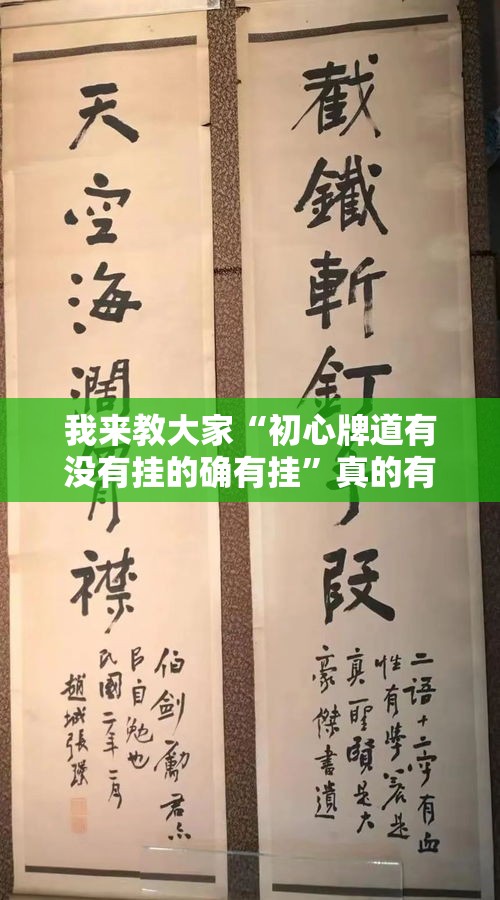 截鐵斬釘手段
二語十二字有血
性有學養是
真聖賢是大
豪傑書遺
天空海濶胷襟
伯劍勵君亦
㠯自勉也
民國二年二月
趙城張
我来教大家“初心牌道有
没有挂的确有挂”真的有